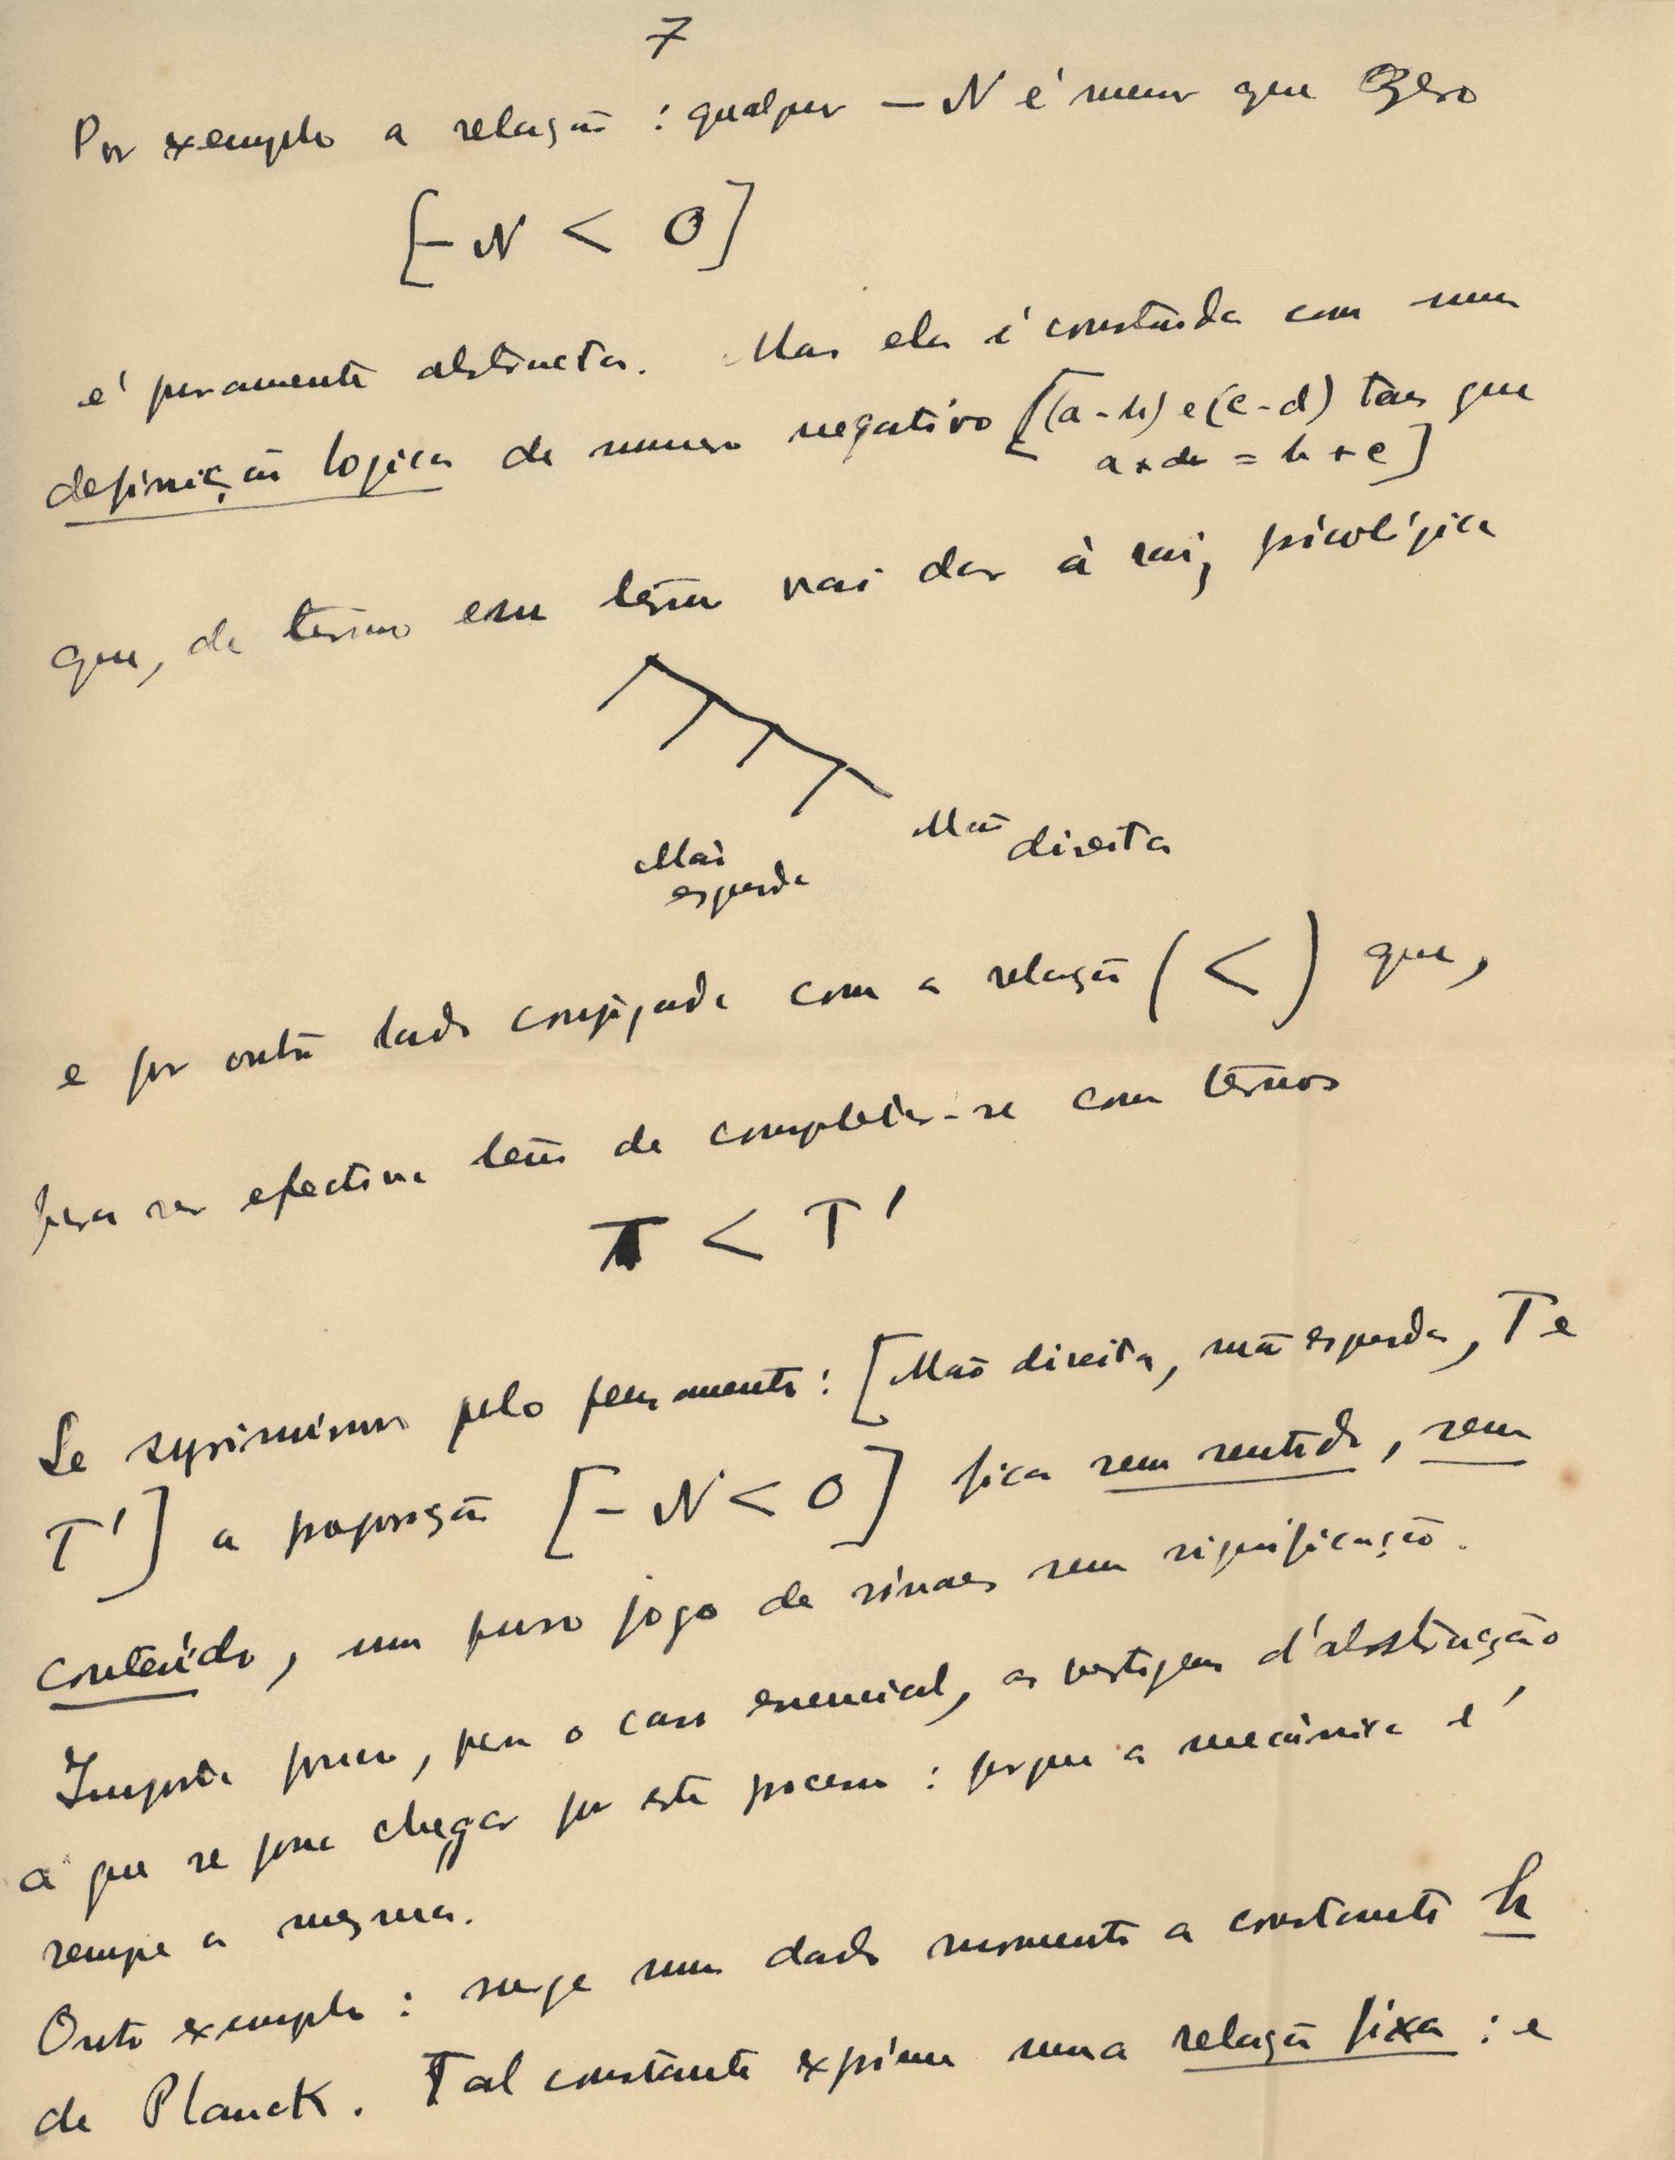 7
Por exemplo a relação : qualquer — N é menor que Zero
[- N < 0]
é puramente abstracta. Mas ela é construida com uma
definição logica de numero negativo [(a - b) e (c - d) taes que
a + d = b + c]
que, de termo em termo vai dar à raiz psicológica
Mão
esquerda
Mão
direita
e por outro lado conjugada com a relação ( < ) que,
para ser efectiva tem de completar-se com termos
T < T'
Se suprimirmos pelo pensamento : [Mão direita, mão esquerda, T e
T'] a proposição [- N < 0] fica sem sentido, sem
conteúdo, um puro jogo de sinaes sem significação.
Importa pouco, para o caso essencial, as vertigens d'abstracção
a que se possa chegar por este processo : porque a mecânica é
sempre a mesma.
Outro exemplo : surge num dado momento a constante h
de Planck. Tal constante exprime uma relação fixa : e